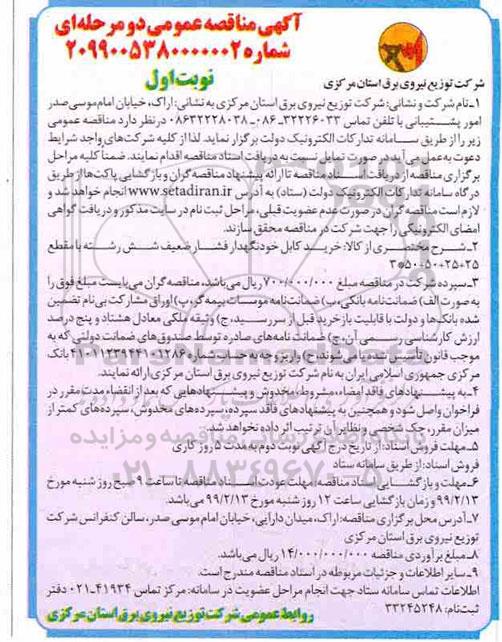 آگهی مناقصه عمومی دو مرحله‌ای
شماره ۲۰۹۹۰۰۵۳۸۰۰۰۰۰۰۲
نوبت اول
شرکت توزیع نیروی برق استان مرکزی
۱- نام شرکت و نشانی: شرکت توزیع نیروی برق استان مرکزی به نشانی: اراک، خیابان امام موسی صدر
امور پشتیبانی با تلفن تماس ۳۲۲۲۶۰۳۳-۰۸۶ ۰۸۶۳۲۲۲۸۰۳۸ در نظر دارد مناقصه عمومی
زیر را از طریق سامانه تدارکات الکترونیک دولت برگزار نماید. لذا از کلیه شرکت‌های واجد شرایط
دعوت به عمل می‌آید در صورت تمایل نسبت به دریافت اسناد مناقصه اقدام نمایند. ضمناً کلیه مراحل
برگزاری مناقصه از دریافت اسناد مناقصه تا ارائه پیشنهاد مناقصه گران و بازگشایی پاکت‌ها از طریق
درگاه سامانه تدارکات الکترونیک دولت (ستاد) به آدرس www.setadiran.ir انجام خواهد شد و
لازم است مناقصه گران در صورت عدم عضویت قبلی، مراحل ثبت نام در سایت مذکور و دریافت گواهی
امضای الکترونیکی را جهت شرکت در مناقصه محقق سازند.
۲- شرح مختصری از کالا: خرید کابل خودنگهدار فشار ضعیف شش رشته با مقطع
۳*۵۰+۵۰+۲۵+۲۵
۳- سپرده شرکت در مناقصه مبلغ ۷۰۰/۰۰۰/۰۰۰ ریال می‌باشد، مناقصه گران می‌بایست مبلغ فوق را
به صورت الف) ضمانت‌نامه بانکی، ب) ضمانت‌نامه موسسات بیمه گر، پ) اوراق مشارکت بی‌نام تضمین
شده بانک‌ها و دولت با قابلیت بازخرید قبل از سررسید، ج) وثیقه ملکی معادل هشتاد و پنج درصد
ارزش کارشناسی رسمی آن، چ) ضمانت نامه‌های صادره توسط صندوق‌های ضمانت دولتی که به
موجب قانون تأسیس شده یا می‌شوند، ح) واریز وجه به حساب شماره بانک
مرکزی جمهوری اسلامی ایران به نام شرکت توزیع نیروی برق استان مرکزی ارائه نمایند.
۴- به پیشنهادهای فاقد امضاء، مشروط، مخدوش و پیشنهادهایی که بعد از انقضاء مدت مقرر در
فراخوان واصل شود و همچنین به پیشنهادهای فاقد سپرده، سپرده‌های مخدوش، سپرده‌های کمتر از
میزان مقرر، چک شخصی و نظایر آن ترتیب اثر داده نخواهد شد.
۵- مهلت فروش اسناد: از تاریخ درج آگهی نوبت دوم به مدت ۵ روز کاری
فروش اسناد: از طریق سامانه ستاد
۶- مهلت و بازگشایی اسناد مناقصه: مهلت عودت اسناد مناقصه تا ساعت ۹ صبح روز شنبه مورخ
۹۹/۲/۱۳ و زمان بازگشایی ساعت ۱۲ روز شنبه مورخ ۹۹/۲/۱۳ می‌باشد.
۷- آدرس محل برگزاری مناقصه: اراک، میدان دارایی، خیابان امام موسی صدر، سالن کنفرانس شرکت
توزیع نیروی برق استان مرکزی
۸- مبلغ برآوردی مناقصه ۱۴/۰۰۰/۰۰۰/۰۰۰ ریال می‌باشد.
۹- سایر اطلاعات و جزئیات مربوطه در اسناد مناقصه مندرج است.
اطلاعات تماس سامانه ستاد جهت انجام مراحل عضویت در سامانه: مرکز تماس ۴۱۹۳۴-۰۲۱ دفتر
ثبت نام: ۳۳۲۴۵۲۴۸
روابط عمومی شرکت توزیع نیروی برق استان مرکزی